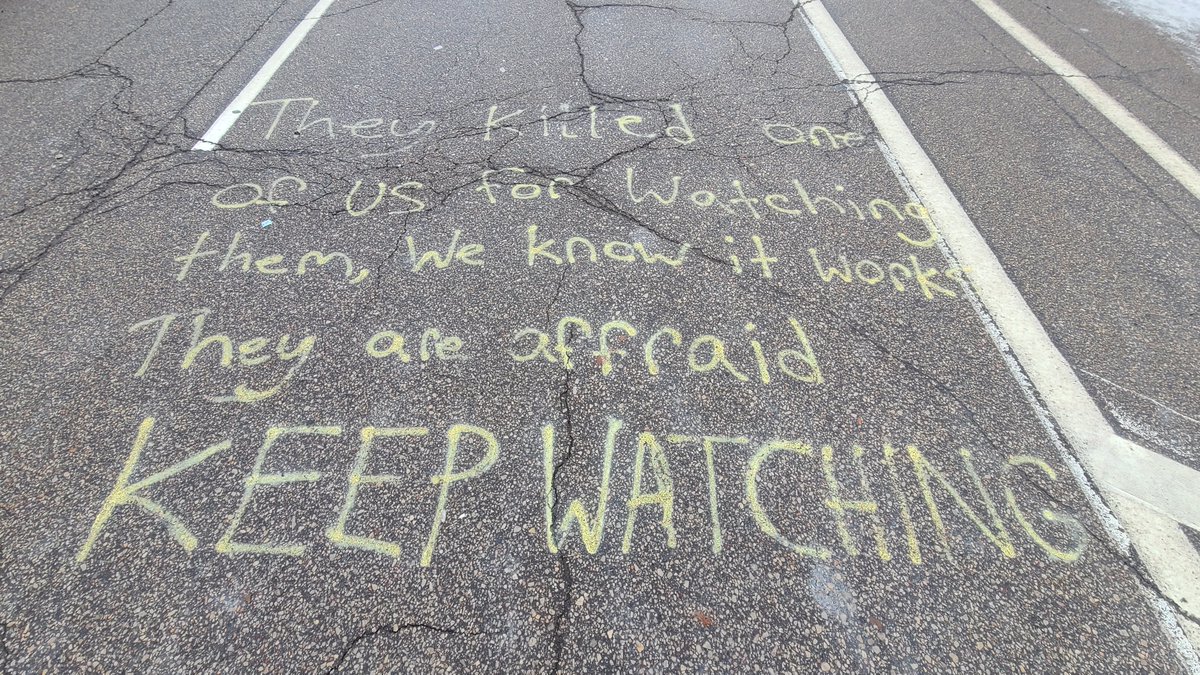 They killed one
of us for watching
them, we know it works
They are affraid
KEEP WATCHING